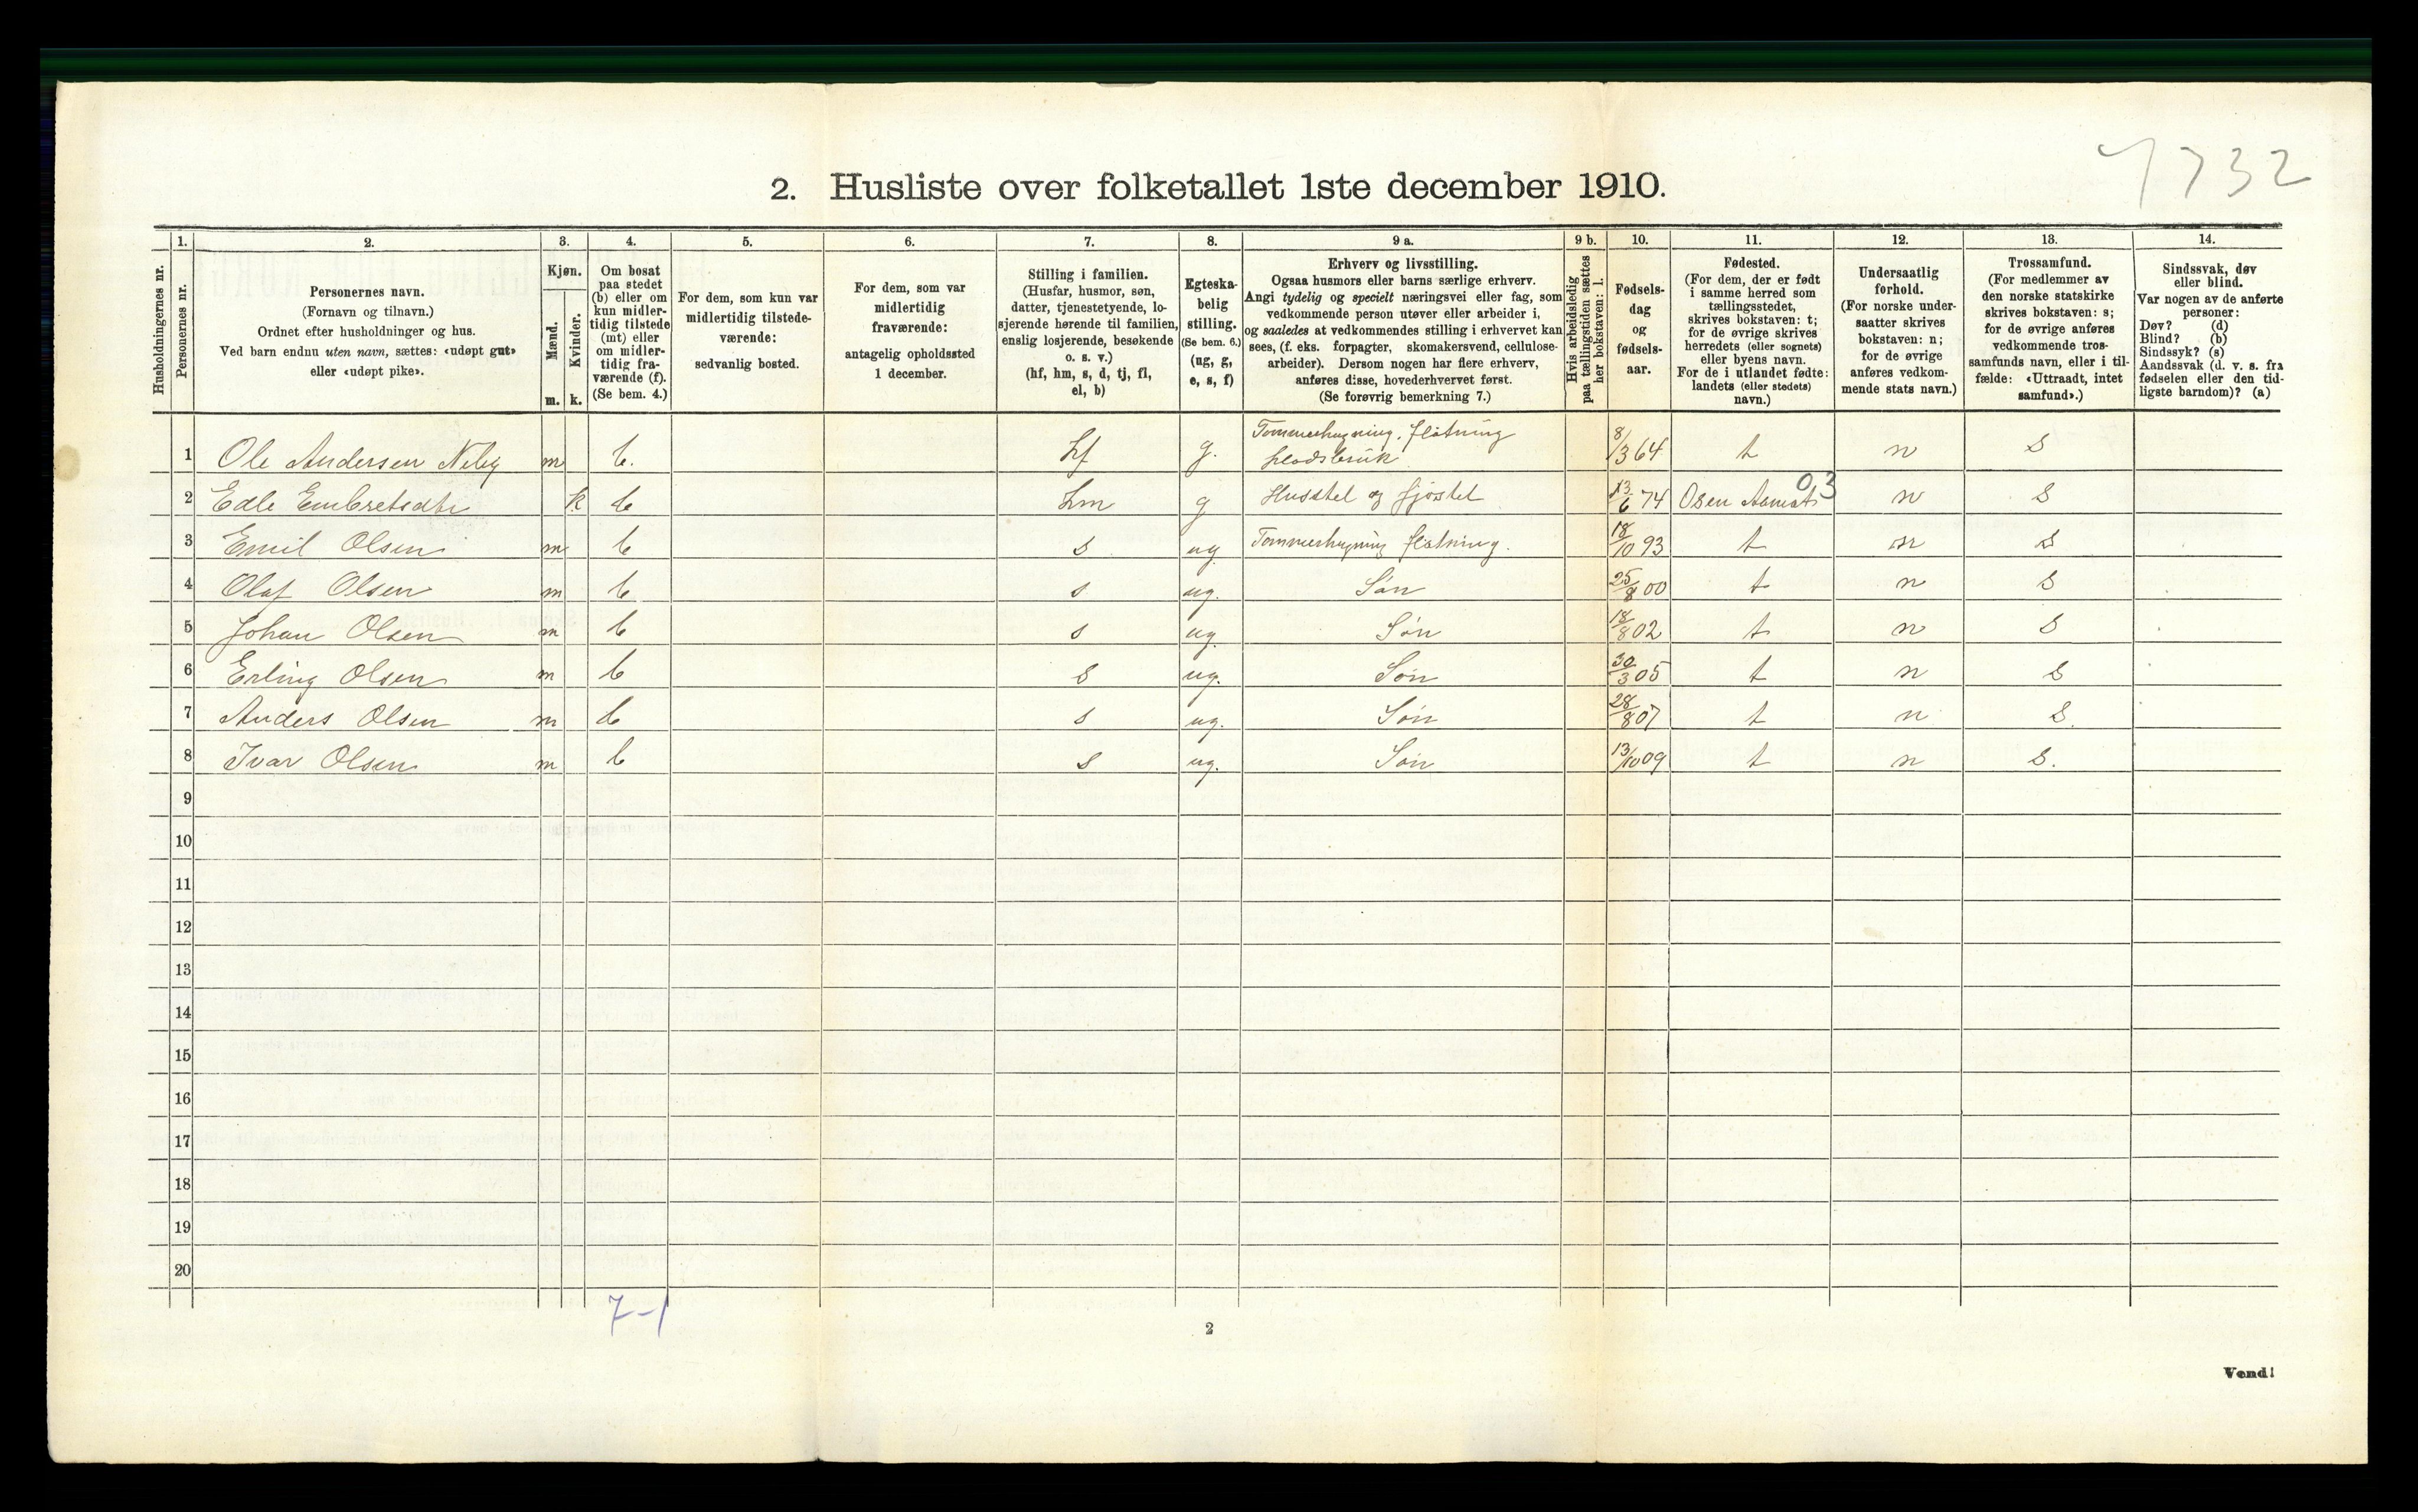 7732
2. Husliste over folketallet 1ste december 1910.
Husholdningernes nr.
1.
Personernes nr.
2.
Personernes navn.
(Fornavn og tilnavn.)
Ordnet efter husholdninger og hus.
Ved barn endnu uten navn, sættes: «udøpt gut»
eller «udøpt pike».
3.
Kjøn.
Mænd.
Kvinder.
m. k.
4.
Om bosat
paa stedet
(b) eller om
kun midler-
tidig tilstede
(mt) eller
om midler-
tidig fra-
værende (f).
(Se bem. 4.)
5.
For dem, som kun var
midlertidig tilstede-
værende:
sedvanlig bosted.
6.
For dem, som var
midlertidig
fraværende:
antagelig opholdssted
1 december.
7.
Stilling i familien.
(Husfar, husmor, søn,
datter, tjenestetyende, lo-
sjerende hørende til familien,
enslig losjerende, besøkende
o. s. v.)
(hf, hm, s, d, tj, fl,
el, b)
8.
Egteska-
belig
stilling.
(Se bem. 6.)
(ug, g,
e, s, f)
9 a.
Erhverv og livsstilling.
Ogsaa husmors eller barns særlige erhverv.
Angi tydelig og specielt næringsvei eller fag, som
vedkommende person utøver eller arbeider i,
og saaledes at vedkommendes stilling i erhvervet kan
sees, (f. eks. forpagter, skomakersvend, cellulose-
arbeider). Dersom nogen har flere erhverv,
anføres disse, hovederhvervet først.
(Se forøvrig bemerkning 7.)
9 b.
Hvis arbeidsledig
paa tællingstiden sættes
her bokstaven: l.
10.
Fødsels-
dag
og
fødsels-
aar.
11.
Fødested.
(For dem, der er født
i samme herred som
tællingsstedet,
skrives bokstaven: t;
for de øvrige skrives
herredets (eller sognets)
eller byens navn.
For de i utlandet fødte:
landets (eller stedets)
navn.)
12.
Undersaatlig
forhold.
(For norske under-
saatter skrives
bokstaven: n;
for de øvrige
anføres vedkom-
mende stats navn.)
13.
Trossamfund.
(For medlemmer av
den norske statskirke
skrives bokstaven: s;
for de øvrige anføres
vedkommende tros-
samfunds navn, eller i til-
fælde: «Uttraadt, intet
samfund».)
14.
Sindssvak, døv
eller blind.
Var nogen av de anførte
personer:
Døv? (d)
Blind? (b)
Sindssyk? (s)
Aandssvak (d. v. s. fra
fødselen eller den tid-
ligste barndom)? (a)
1 Ole Andersen Neby m b. hf g. Tømmerhugning, fløtning 8/3 64 t n s
Jordsbruk
2 Edle Embretsdtr k b hm g Husstel og fjøsstel 13/6 74 Osen Aamot 0,3 n s
3 Emil Olsen m b s ug Tømmerhugning fløtning. 18/10 93 t n s
4 Olaf Olsen m b s ug. Søn 25/8 00 t n s
5 Johan Olsen m b s ug. Søn 18/8 02 t n s
6 Erling Olsen m b s ug. Søn 30/3 05 t n s
7 Anders Olsen m b s ug. Søn 28/8 07 t n s.
8 Ivar Olsen m b s ug. Søn 13/10 09 t n s.
9
10
11
12
13
14
15
16
17
18
19
20
7-1
2
Vend!